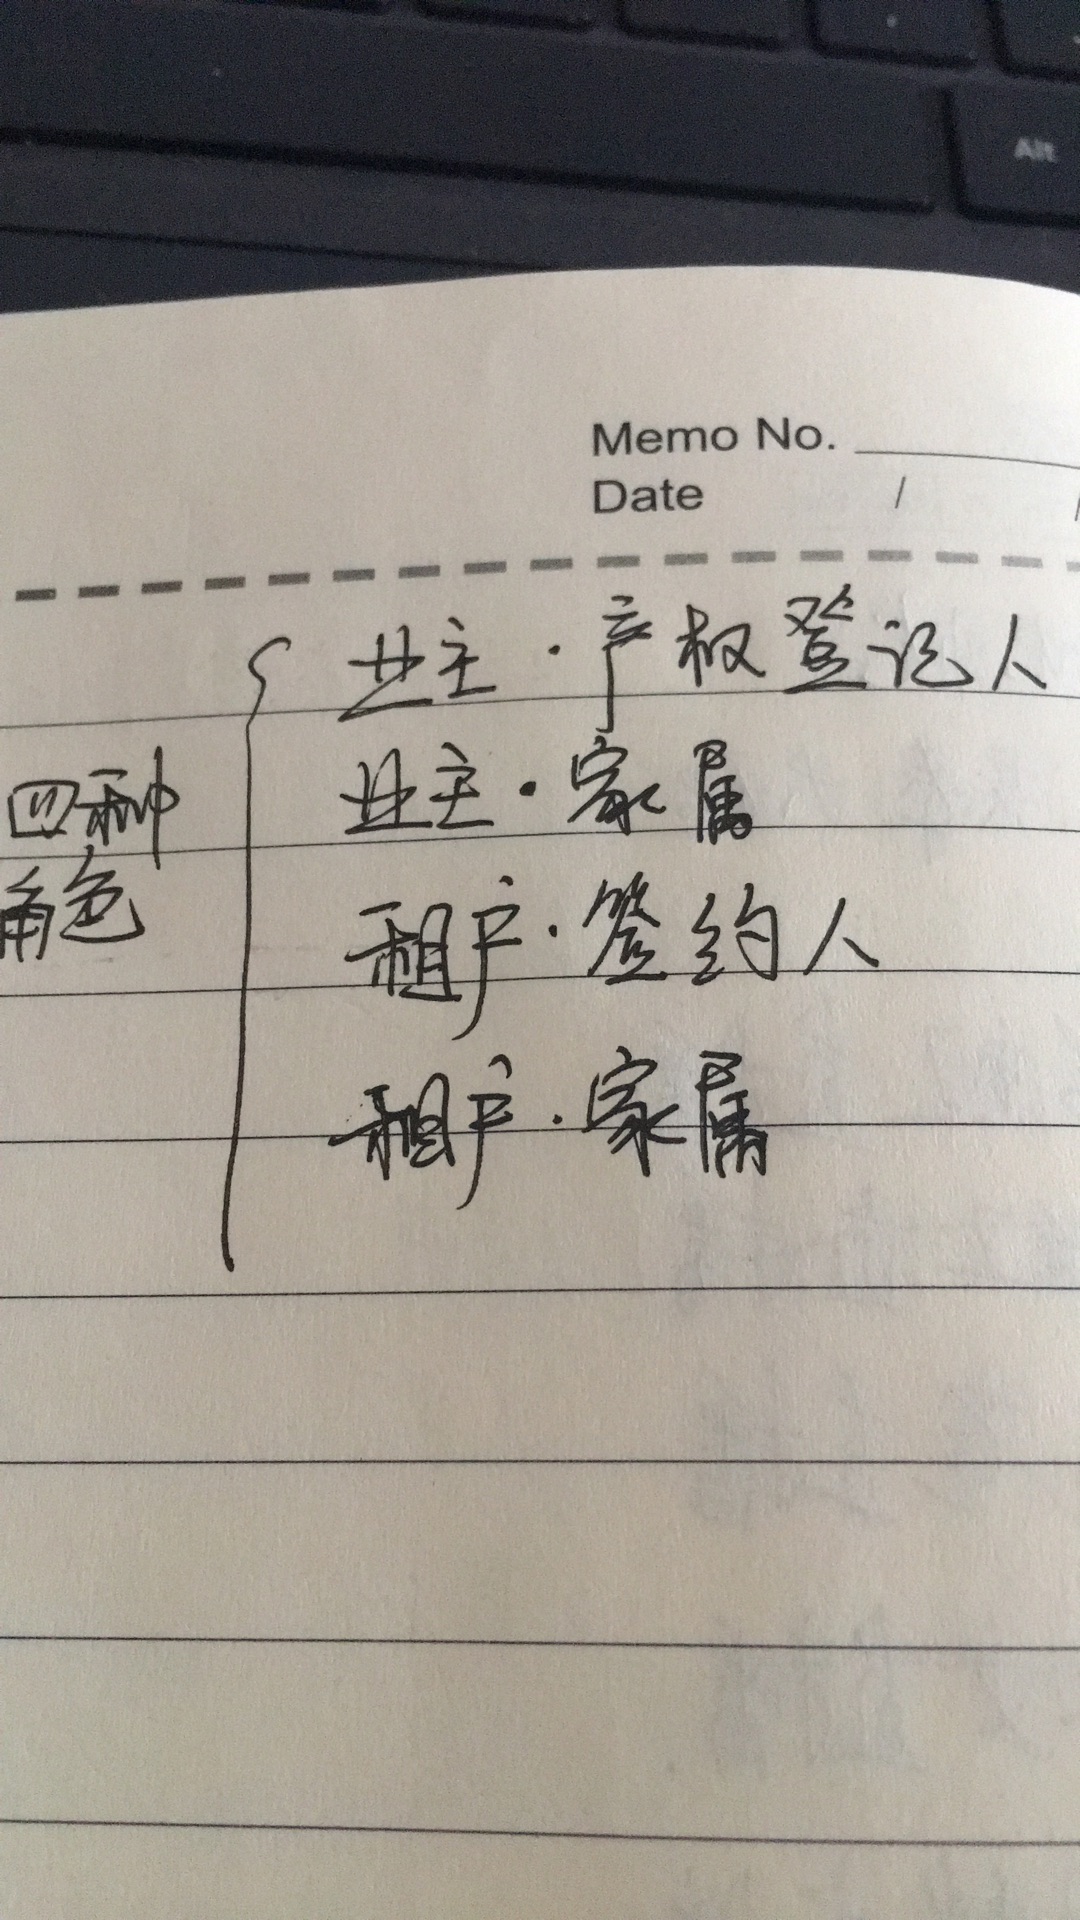 Alt
Memo No.
Date / /
四种
角色
业主·产权登记人
业主·家属
租户·签约人
租户·家属